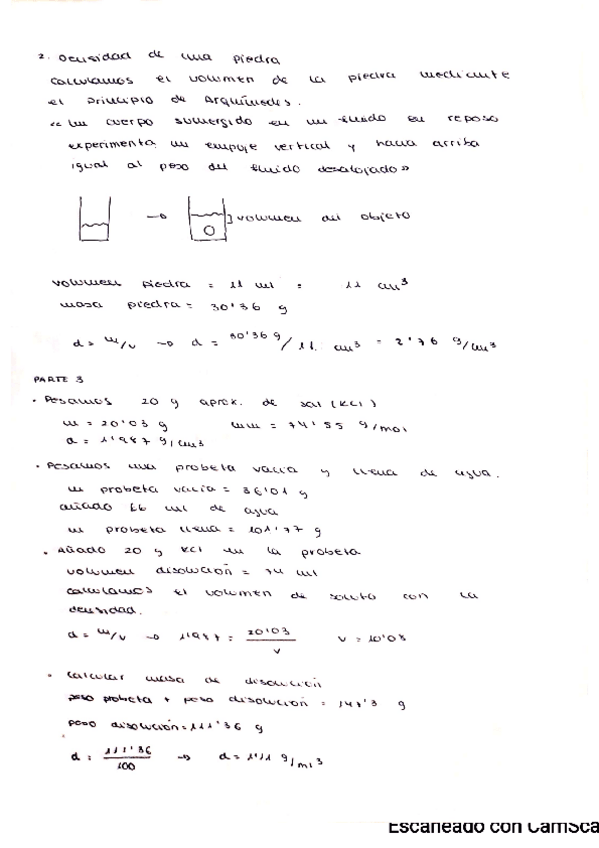 2. Densidad de una piedra
calculamos el volumen de la piedra mediante
el principio de Arquímedes.
«Un cuerpo sumergido en un fluido en reposo
experimenta un empuje vertical y hacia arriba
igual al peso del fluido desalojado»
→ volumen del objeto
volumen piedra = 11 ml = 11 cm³
masa piedra = 30'36 g
d = m/v → d = 30'36 g / 11 cm³ = 2'76 g/cm³
PARTE 3
• Pesamos 20 g aprox. de sal (KCl)
m = 20'03 g mm = 74'55 g/mol
d = 1'987 g/cm3
• Pesamos una probeta vacía y llena de agua.
m probeta vacía = 36'01 g
añado 66 ml de agua
m probeta llena = 101'77 g
• Añado 20 g KCl en la probeta
volumen disolución = 74 ml
calculamos el volumen de soluto con la
densidad.
d = m/v → 1'987 = 20'03 / v v = 10'08
• Calcular masa de disolución
peso probeta + peso disolución = 147'3 g
peso disolución = 111'36 g
d = 111'36 / 100 → d = 1'11 g/ml3
Escaneado con CamSca